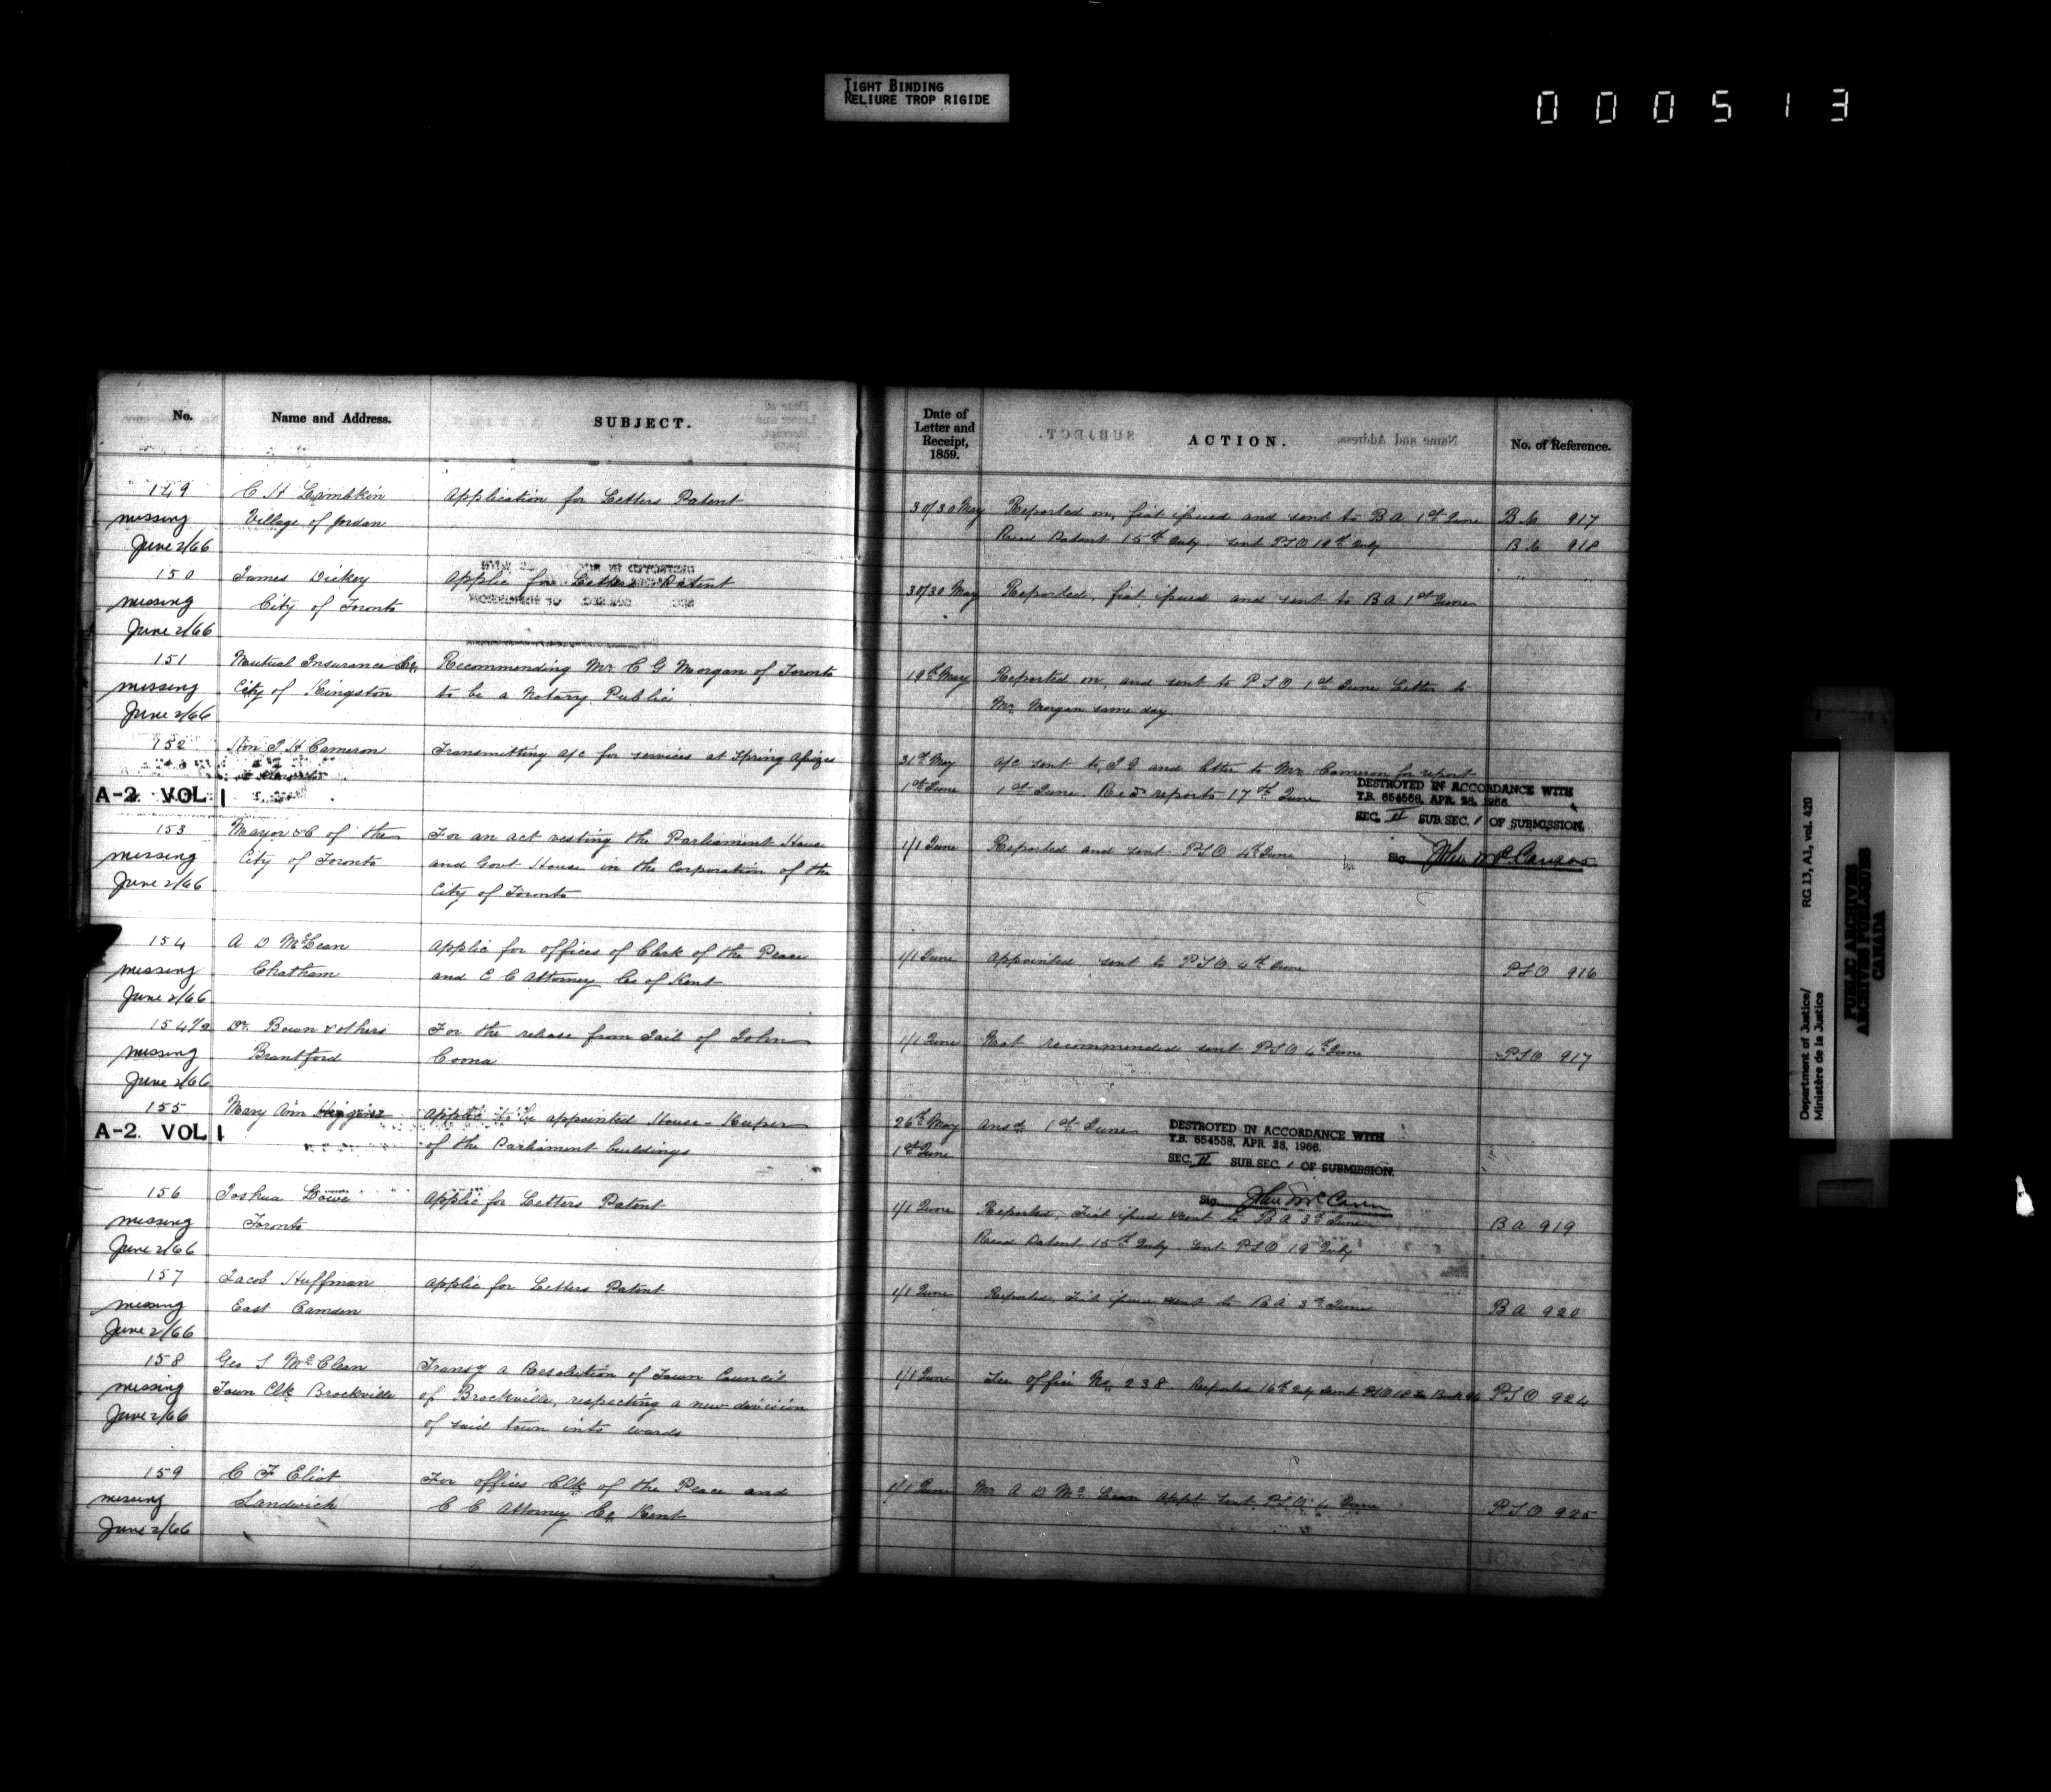 TIGHT BINDING
RELIURE TROP RIGIDE
000513
No.
Name and Address.
SUBJECT.
149
C H Lambkin
Application for Letters Patent
missing
Village of Jordan
June 2/66
150
James Dickey
Applic for Letters Patent
missing
City of Toronto
June 2/66
151
Mutual Insurance Co.
Recommending Mr C G Morgan of Toronto
missing
City of Kingston
to be a Notary Public
June 2/66
152
Hon J H Cameron
Transmitting a/c for services at Spring Assizes
A-2 VOL 1
153
Mayor &C of the
For an act vesting the Parliament House
missing
City of Toronto
and Govt House in the Corporation of the
June 2/66
City of Toronto
154
A D McLean
Applic for offices of Clerk of the Peace
missing
Chatham
and C C Attorney Co of Kent
June 2/66
154 1/2
Dr. Bown & others
For the release from Jail of John
missing
Brantford
Coona
June 2/66
155
Mary Ann Higgins
Applic to be appointed House-Keeper
A-2 VOL 1
of the Parliament buildings
156
Joshua Lowe
Applic for Letters Patent
missing
Toronto
June 2/66
157
Jacob Huffman
Applic for Letters Patent
missing
East Camden
June 2/66
158
Geo S McClean
Transg a Resolution of Town Council
missing
Town Clk Brockville
of Brockville, respecting a new division
June 2/66
of said town into wards
159
C F Eliot
For offices Clk of the Peace and
missing
Sandwich
C C Attorney Co. Kent
June 2/66
Date of
Letter and
Receipt,
1859.
ACTION.
No. of Reference.
30/30 May
Reported on, fiat issued and sent to B A 1st June
917
Recd Patent 15th July. sent PSO 19th July
918
30/30 May
Reported, fiat issued and sent to B A 1st June
19th May
Reported on, and sent to P S O 1st June Letter to
Mr. Morgan same day
31st May
a/c sent to I G and letter to Mr Cameron for report
1st June
1st June. Recd reports 17th June
DESTROYED IN ACCORDANCE WITH
T.B. 654558, APR. 28, 1966.
SEC. II SUB. SEC. 1 OF SUBMISSION.
1/1 June
Reported and sent PSO 4th June
Sig.
1/1 June
Appointed sent to PSO 4th June
PSO 916
1/1 June
Not recommended sent PSO 4th June
PSO 917
26th May
Ansd 1st June
1st June
DESTROYED IN ACCORDANCE WITH
T.B. 654558, APR. 28, 1966.
SEC. II SUB. SEC. 1 OF SUBMISSION.
Sig.
1/1 June
Reported, Fiat issued & sent to B A 3rd June
B A 919
Recd Patent 15th July sent PSO 19 July
1/1 June
Reported, Fiat issued & sent to B A 3rd June
B A 920
1/1 June
See office No. 238 Reported 16th July sent PSO
PSO 924
1/1 June
Mr A D McLean appt sent PSO 4 June
PSO 925
Department of Justice/
Ministère de la Justice
RG 13, A1, vol. 420
PUBLIC ARCHIVES
ARCHIVES PUBLIQUES
CANADA